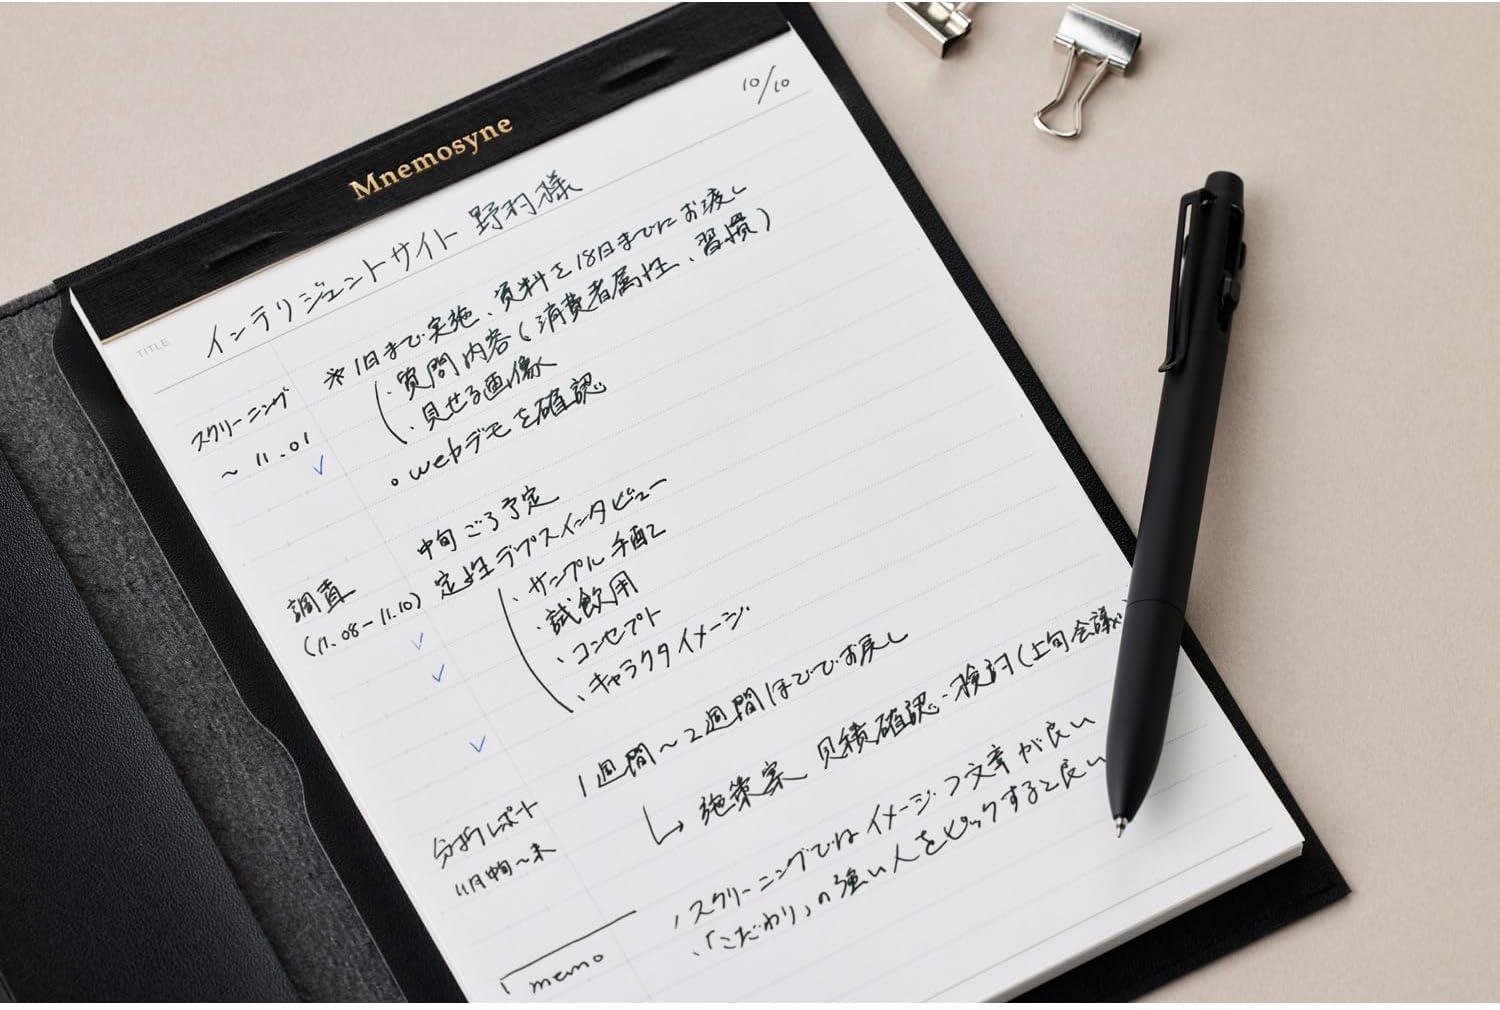 10/10
Mnemosyne
TITLE
インテリジェントサイト 野村様
スクリーニング
~ 11.01
※1日まで実施、資料を18日までにお渡し
・質問内容(消費者属性、習慣)
・見せる画像
。webデモを確認
調査
(11.08-11.10)
中旬ごろ予定
定性デプスインタビュー
・サンプル手配
・試飲用
・コンセプト
・キャラクタイメージ
分析レポート
11月中旬~末
1週間~2週間ほどでお戻し
↳ 施策案、見積確認・検討(上旬会議
memo
・スクリーニングではイメージ・文章が良い
・「こだわり」の強い人をピックすると良い